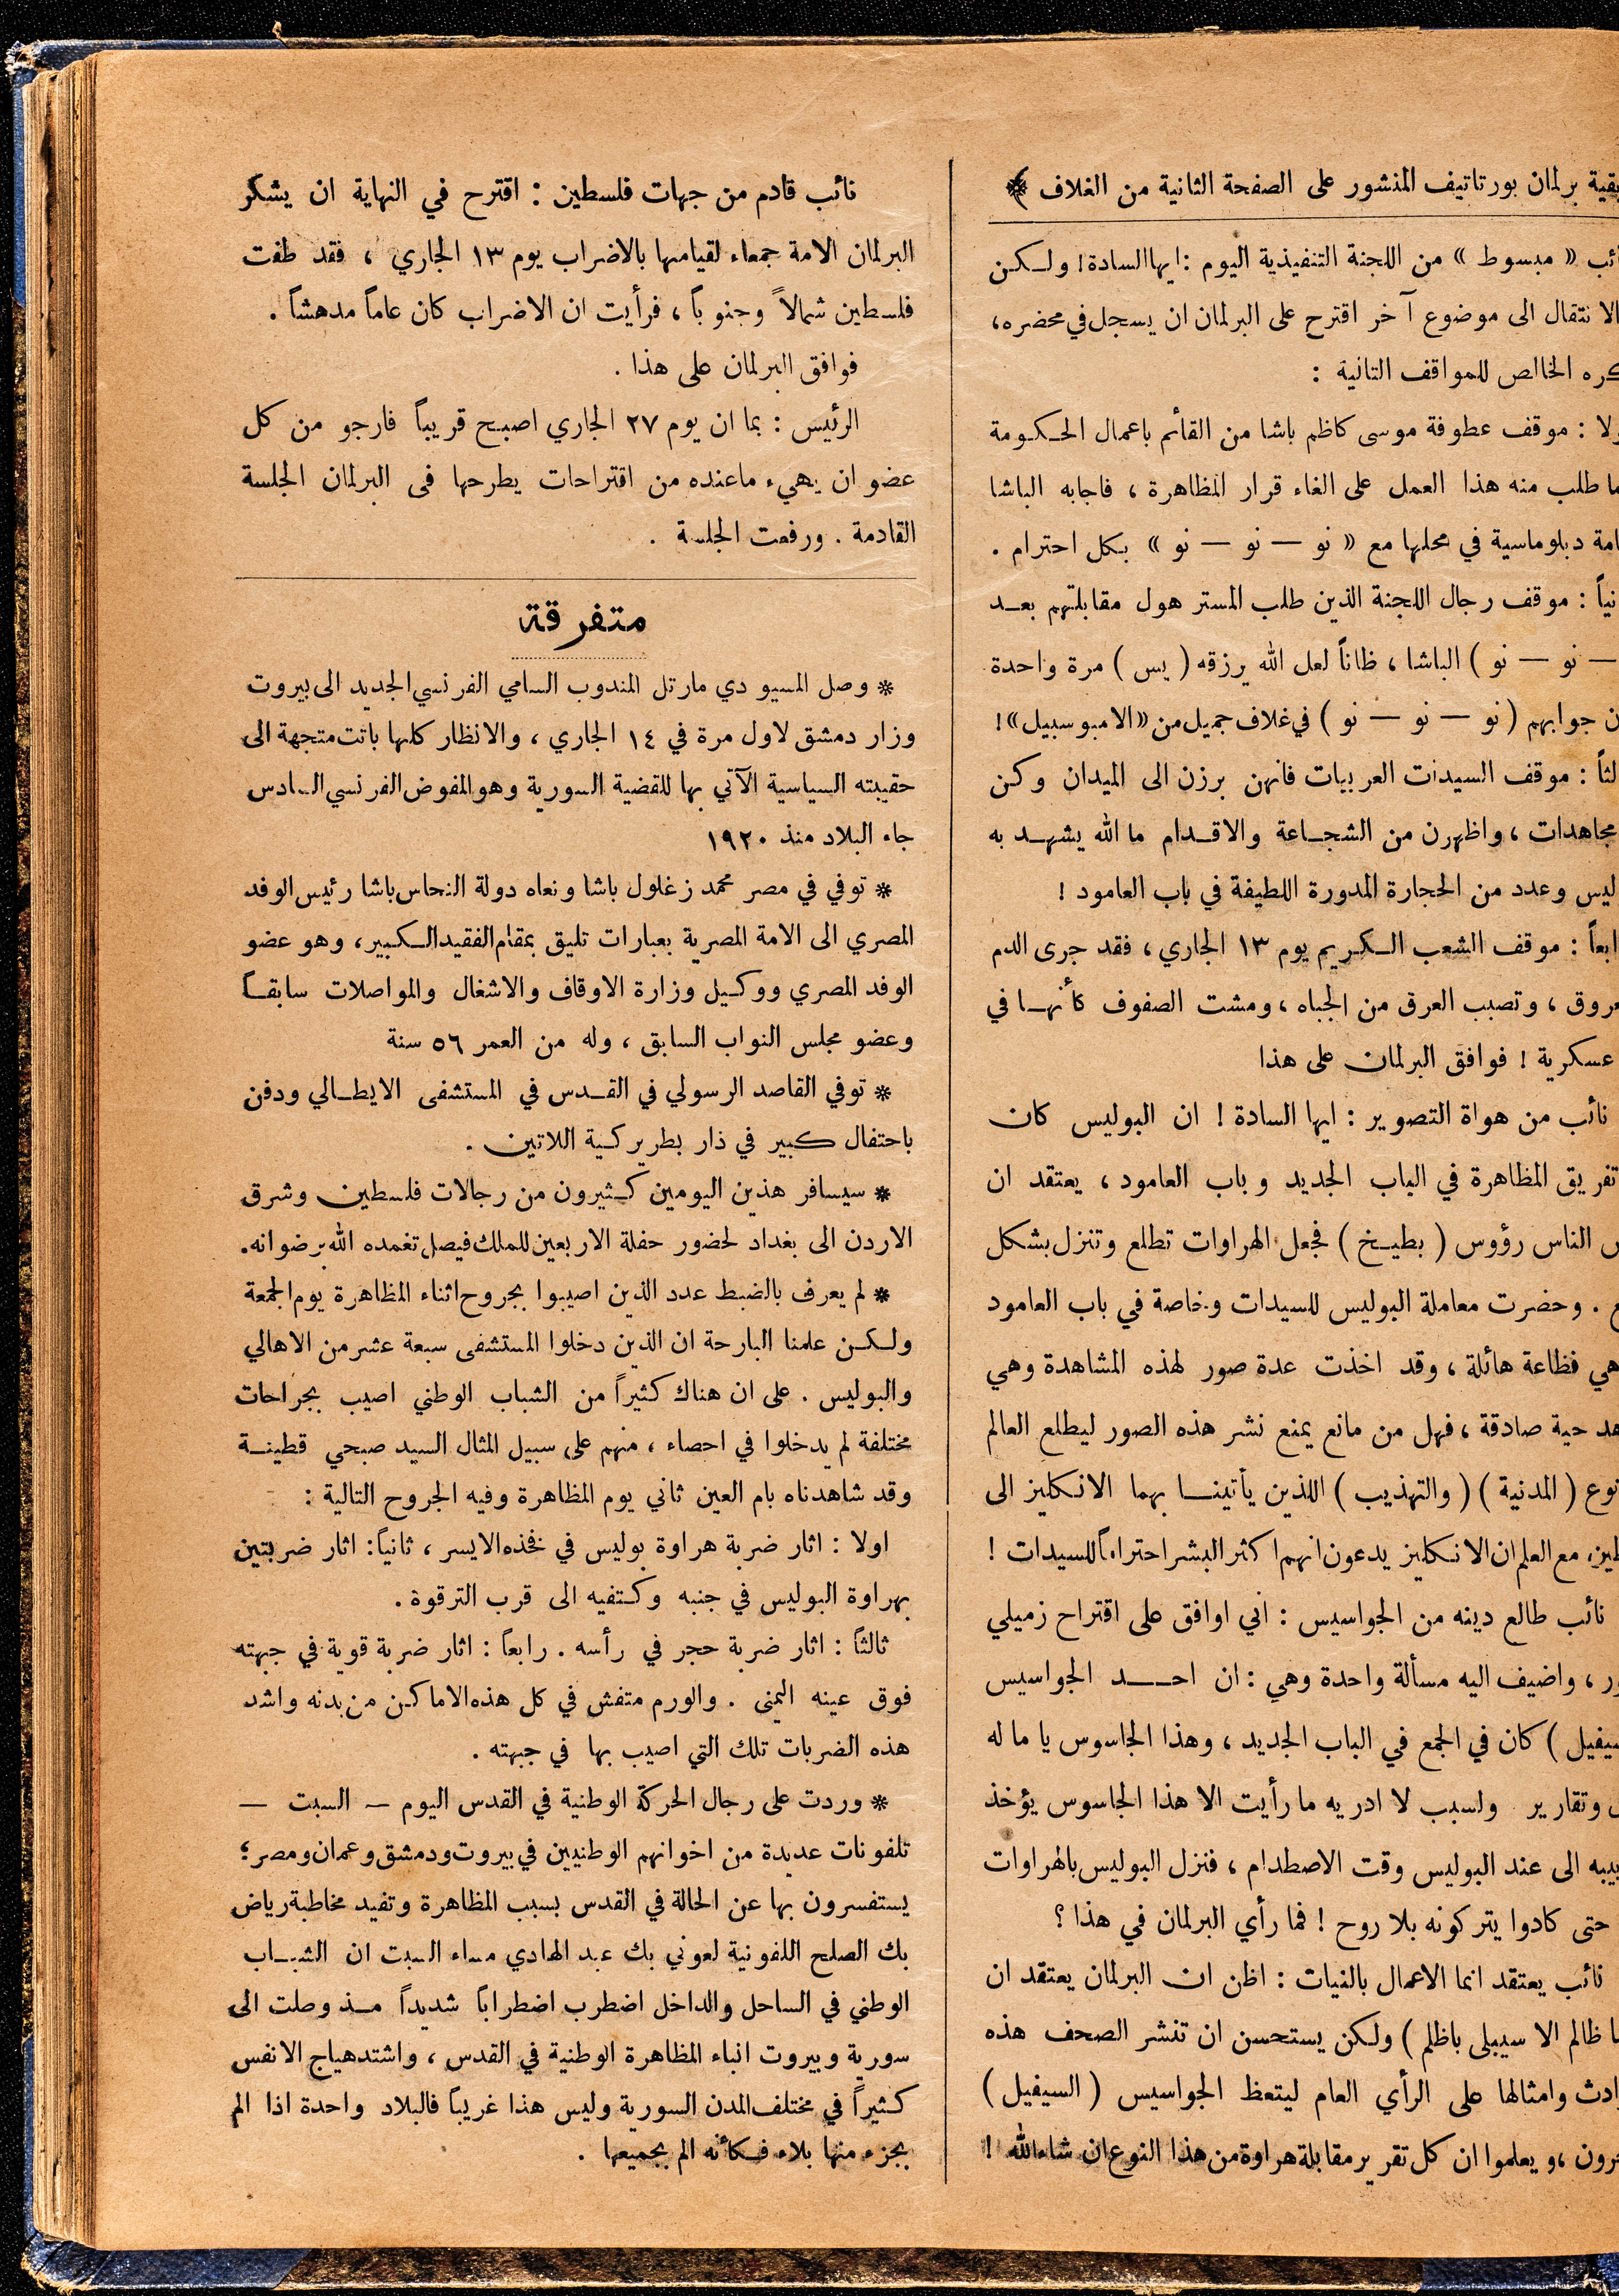 بقية برلمان بورتاتيف المنشور على الصفحة الثانية من الغلاف ﴾
« مبسوط » من اللجنة التنفيذية اليوم : ايها السادة ! ولكن
الانتقال الى موضوع آخر اقترح على البرلمان ان يسجل في محضره ،
الخالص للمواقف التانية :
موقف عطوفة موسى كاظم باشا من القأئم باعمال الحكومة
طلب منه هذا العمل على الغاء قرار المظاهرة ، فاجابه الباشا
دبلوماسية في محلها مع « نو — نو — نو » بكل احترام .
موقف رجال اللجنة الذين طلب المستر هول مقابلتهم بعد
— نو — نو ) الباشا ، ظاناً لعل الله يرزقه ( يس ) مرة واحدة
جوابهم ( نو — نو — نو ) في غلاف جميل من « الامبوسبيل » !
موقف السيدات العربيات فانهن برزن الى الميدان وكن
مجاهدات ، واظهرن من الشجاعة والاقدام ما الله يشهد به
وعدد من الحجارة المدورة اللطيفة في باب العامود !
موقف الشعب الكريم يوم ١٣ الجاري ، فقد جرى الدم
وتصبب العرق من الجباه ، ومشت الصفوف كأنها في
عسكرية ! فوافق البرلمان على هذا
نائب من هواة التصوير : ايها السادة ! ان البوليس كان
تفريق المظاهرة في الباب الجديد وباب العامود ، يعتقد ان
الناس رؤوس ( بطيخ ) فجعل الهراوات تطلع وتنزل بشكل
. وحضرت معاملة البوليس للسيدات وخاصة في باب العامود
هي فظاعة هائلة ، وقد اخذت عدة صور لهذه المشاهدة وهي
حية صادقة ، فهل من مانع يمنع نشر هذه الصور ليطلع العالم
نوع ( المدنية ) ( والتهذيب ) اللذين يأتينا بهما الانكليز الى
مع العلم ان الانكليز يدعون انهم اكثر البشر احتراماً للسيدات !
نائب طالع دينه من الجواسيس : اني اوافق على اقتراح زميلي
، واضيف اليه مسألة واحدة وهي : ان احد الجواسيس
) كان في الجمع في الباب الجديد ، وهذا الجاسوس يا ما له
وتقارير ولسبب لا ادريه ما رأيت الا هذا الجاسوس يؤخذ
الى عند البوليس وقت الاصطدام ، فنزل البوليس بالهراوات
حتى كادوا يتركونه بلا روح ! فما رأي البرلمان في هذا ؟
نائب يعتقد انما الاعمال بالنيات : اظن ان البرلمان يعتقد ان
ظالم الا سيبلى باظلم ) ولكن يستحسن ان تنشر الصحف هذه
وامثالها على الرأي العام ليتعظ الجواسيس ( السيفيل )
، ويعلموا ان كل تقرير مقابلة هراوة من هذا النوع ان شاء الله !
نائب قادم من جهات فلسطين : اقترح في النهاية ان يشكر
البرلمان الامة جمعاء لقيامها بالاضراب يوم ١٣ الجاري ، فقد طفت
فلسطين شمالاً وجنوباً ، فرأيت ان الاضراب كان عاماً مدهشاً .
فوافق البرلمان على هذا .
الرئيس : بما ان يوم ٢٧ الجاري اصبح قريباً فارجو من كل
عضو ان يهيء ماعنده من اقتراحات يطرحها فى البرلمان الجلسة
القادمة . ورفعت الجلسة .
متفرقة
* وصل المسيو دي مارتل المندوب السامي الفرنسي الجديد الى بيروت
وزار دمشق لاول مرة في ١٤ الجاري ، والانظار كلها باتت متجهة الى
حقيبته السياسية الآتي بها للقضية السورية وهو المفوض الفرنسي السادس
جاء البلاد منذ ١٩٢٠
* توفي في مصر محمد زغلول باشا ونعاه دولة النحاس باشا رئيس الوفد
المصري الى الامة المصرية بعبارات تليق بمقام الفقيد الكبير ، وهو عضو
الوفد المصري ووكيل وزارة الاوقاف والاشغال والمواصلات سابقاً
وعضو مجلس النواب السابق ، وله من العمر ٥٦ سنة
* توفي القاصد الرسولي في القدس في المستشفى الايطالي ودفن
باحتفال كبير في ذار بطريركية اللاتين .
* سيسافر هذين اليومين كثيرون من رجالات فلسطين وشرق
الاردن الى بغداد لحضور حفلة الاربعين للملك فيصل تغمده الله برضوانه .
* لم يعرف بالضبط عدد الذين اصيبوا بجروح اثناء المظاهرة يوم الجمعة
ولكن علمنا البارحة ان الذين دخلوا المستشفى سبعة عشر من الاهالي
والبوليس . على ان هناك كثيراً من الشباب الوطني اصيب بجراحات
مختلفة لم يدخلوا في احصاء ، منهم على سبيل المثال السيد صبحي قطينة
وقد شاهدناه بام العين ثاني يوم المظاهرة وفيه الجروح التالية :
اولا : اثار ضربة هراوة بوليس في فخذه الايسر ، ثانياً : اثار ضربتين
بهراوة البوليس في جنبه وكتفيه الى قرب الترقوة .
ثالثاً : اثار ضربة حجر في رأسه . رابعاً : اثار ضربة قوية في جبهته
فوق عينه اليمنى . والورم متفش في كل هذه الاماكن من بدنه واشد
هذه الضربات تلك التي اصيب بها في جبهته .
* وردت على رجال الحركة الوطنية في القدس اليوم — السبت —
تلفونات عديدة من اخوانهم الوطنيين في بيروت ودمشق وعمان ومصر ؛
يستفسرون بها عن الحالة في القدس بسبب المظاهرة وتفيد مخاطبة رياض
بك الصلح اللفونية لعوني بك عبد الهادي مساء السبت ان الشباب
الوطني في الساحل والداخل اضطرب اضطراباً شديداً مذ وصلت الى
سورية وبيروت انباء المظاهرة الوطنية في القدس ، واشتد هياج الانفس
كثيراً في مختلف المدن السورية وليس هذا غريباً فالبلاد واحدة اذا الم
بجزء منها بلاء فكأنه الم بجميعها .